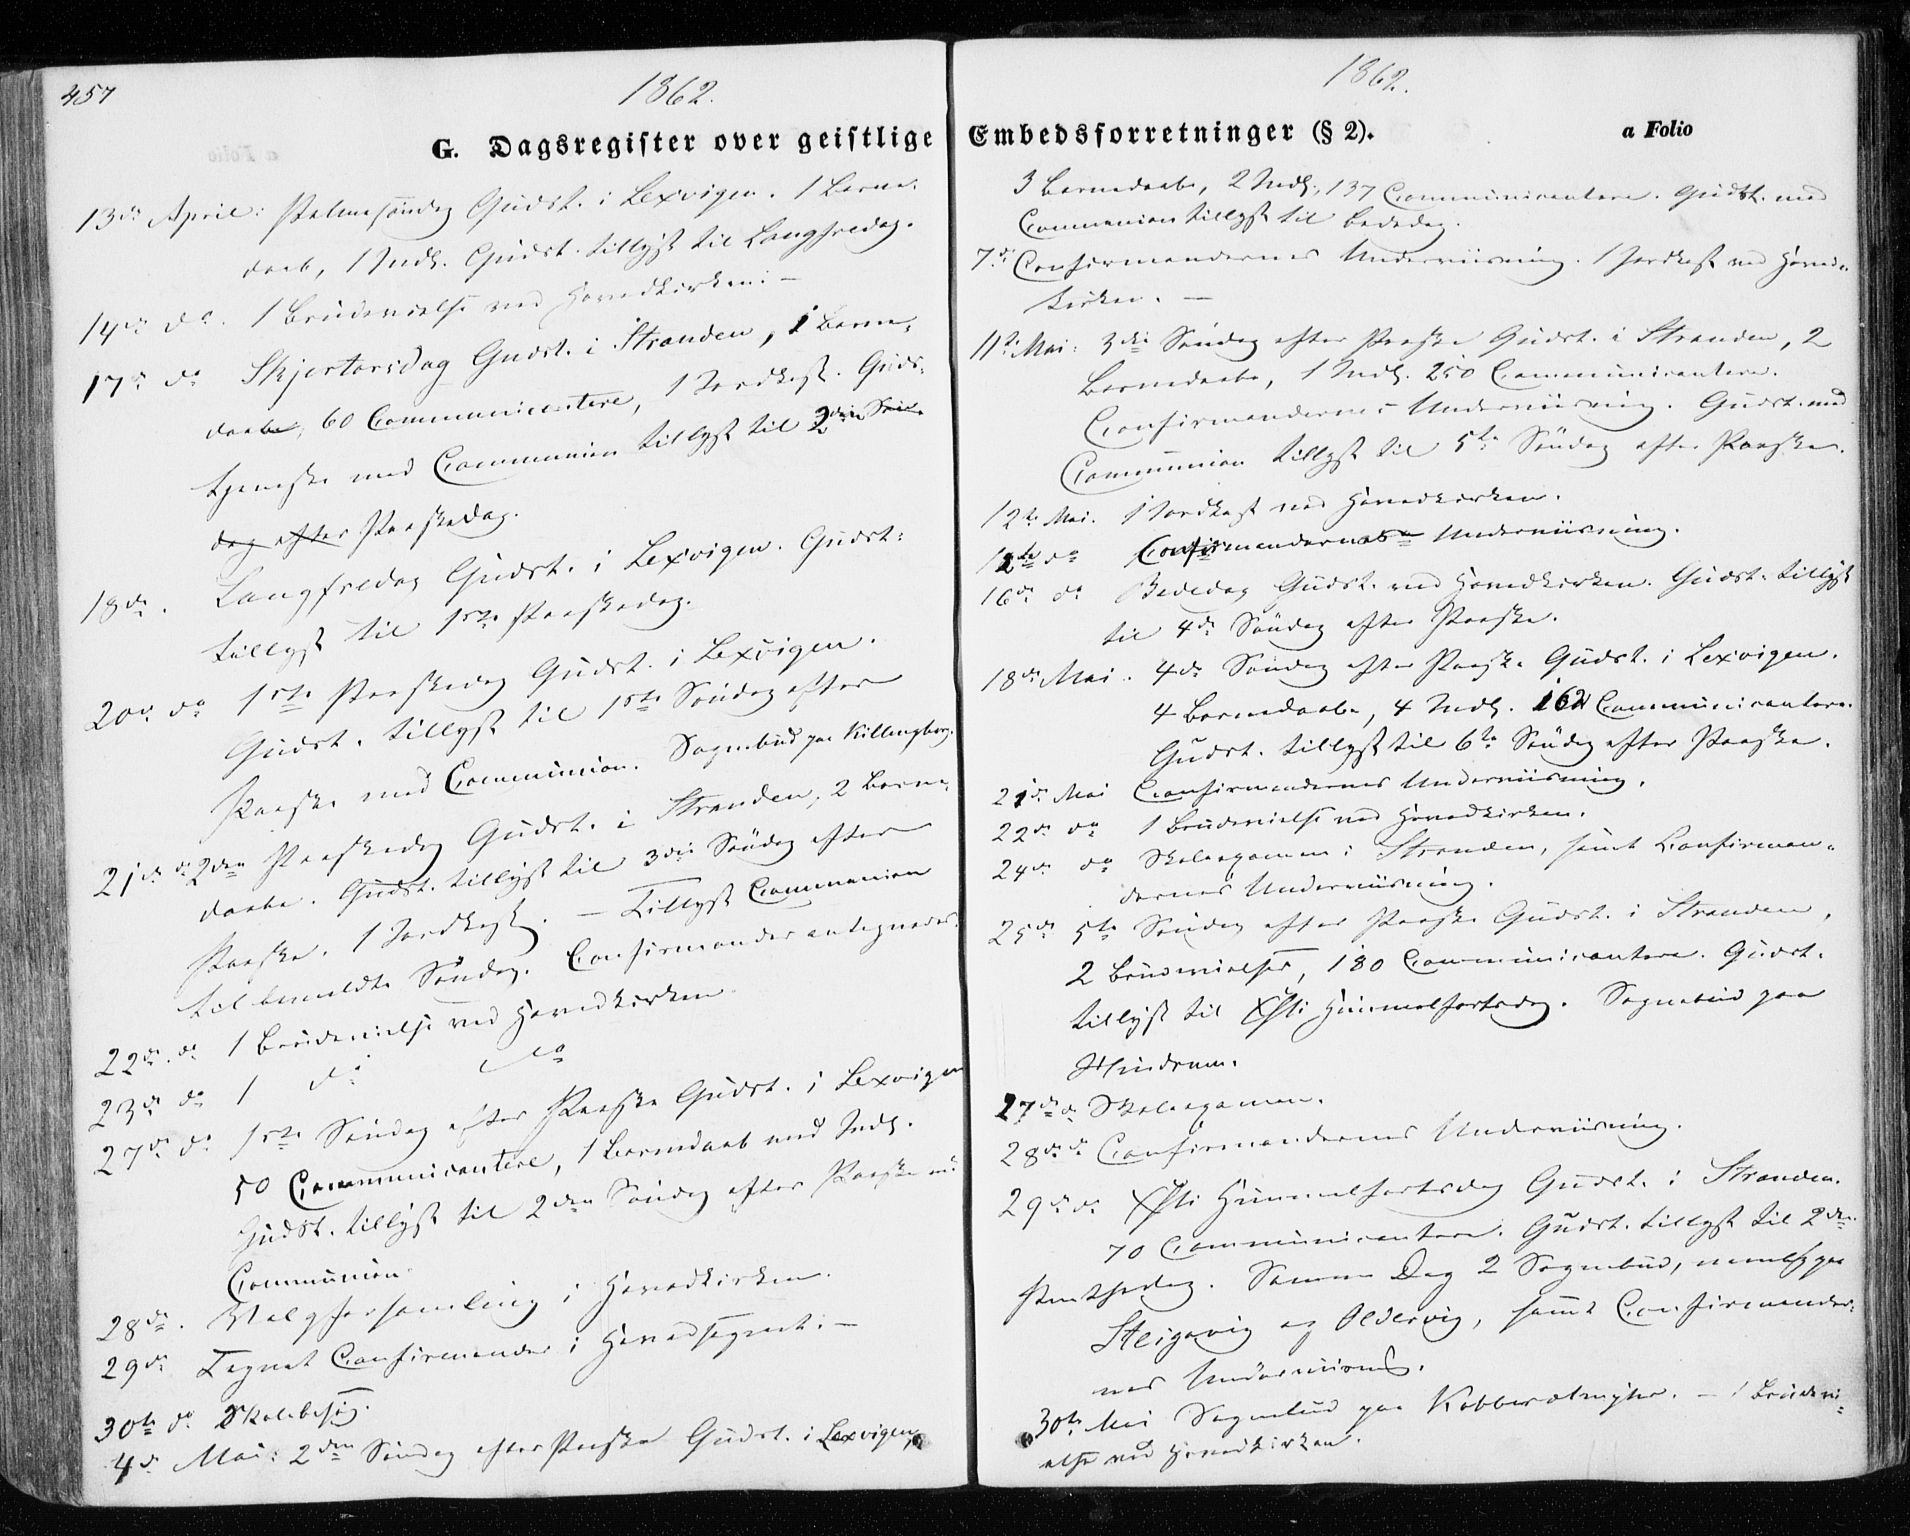 457
1862.
G. Dagsregister over geistlige
13de April: Palmesøndag Gudst. i Lexvigen. 1 Barne-
daab, 1 Indl. Gudst. tillyst til Langfredag.
14de do. 1 Brudevielse ved Hovedkirken. —
17de do Skjertorsdag Gudst. i Stranden, 1 Barne-
daab, 60 Communicentere, 1 Jordkast. Guds-
tjeneste med Communion tillyst til 2den Søn-
dag efter Paaskedag.
18de. Langfredag Gudst. i Lexvigen. Gudst.
tillyst til 1ste Paaskedag.
20de do 1ste Paaskedag Gudst. i Lexvigen.
Gudst. tillyst til 1ste Søndag efter
Paaske med Communion. Sognebud paa Killingberg.
21de d. 2den Paaskedag Gudst. i Stranden, 2 Barne-
daabe. Gudst. tillyst til 3die Søndag efter
Paaske. 1 Jordkast. — Tillyst Communion
til bemeldte Søndag. Confirmander antegnedes.
22de do 1 Brudevielse ved Hovedkirken
23de do 1 do do
27de do 1ste Søndag efter Paaske Gudst. i Lexvigen
50 Communicantere, 1 Barnedaab med Indl.
Gudst. tillyst til 2den Søndag efter Paaske m:
Communion.
28de. Valgforsamling i Hovedkirken.
29de Tegnet Confirmander i Hovedsognet. —
30te do Skolebesøg.
4de Mai: 2den Søndag efter Paaske Gudst. i Lexvigen,
1862.
Embedsforretninger (§ 2).
a Folio
3 Barnedaabe, 2 Indl., 137 Communicantere. Gudst. med
Communion tillyst til Bededag.
7de Confirmandernes Underviisning. 1 Jordkast ved Hoved-
kirken. —
11te Mai: 3die Søndag efter Paaske Gudst. i Stranden, 2
Barnedaabe, 1 Indl. 250 Communicantere.
Confirmandernes Underviisning. Gudst. med
Communion tillyst til 5te Søndag efter Paaske.
12te Mai. 1 Jordkast ved Hovedkirken.
12te do Confirmandernes Underviisning.
16de do Bededag Gudst. ved Hovedkirken. Gudst. tillyst
til 4de Søndag efter Paaske.
18de Mai. 4de Søndag efter Paaske Gudst. i Lexvigen.
4 Barnedaabe, 4 Indl. 162 Communicantere.
Gudst. tillyst til 6te Søndag efter Paaske.
21de Mai Confirmandernes Underviisning.
22de do 1 Brudevielse ved Hovedkirken.
24de do Skoleexamen i Stranden, samt Confirman-
dernes Underviisning.
25de 5te Søndag efter Paaske Gudst. i Stranden,
2 Brudevielser, 180 Communicantere. Gudst.
tillyst til Xsti Himmelfartsdag. Sognebud paa
Hindrum.
27de do Skoleexamen.
28de do Confirmandernes Underviisning.
29de do Xsti Himmelfartsdag Gudst. i Stranden.
70 Communicantere. Gudst. tillyst til 2den
Pintsedag. Samme Dag 2 Sognebud, nemlig paa
Steigavig og Oldervig, samt Confirmander-
nes Underviisng.
30te Mai Sognebud paa . — 1 Brudevi-
else ved Hovedkirken.